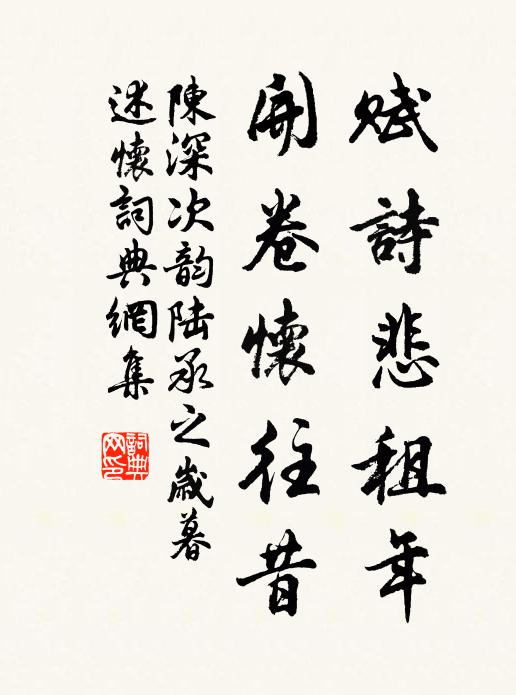 賦詩悲租年
開卷懷往昔
陳深次韵陸承之歲暮
述懷詞典網集
詞典网印